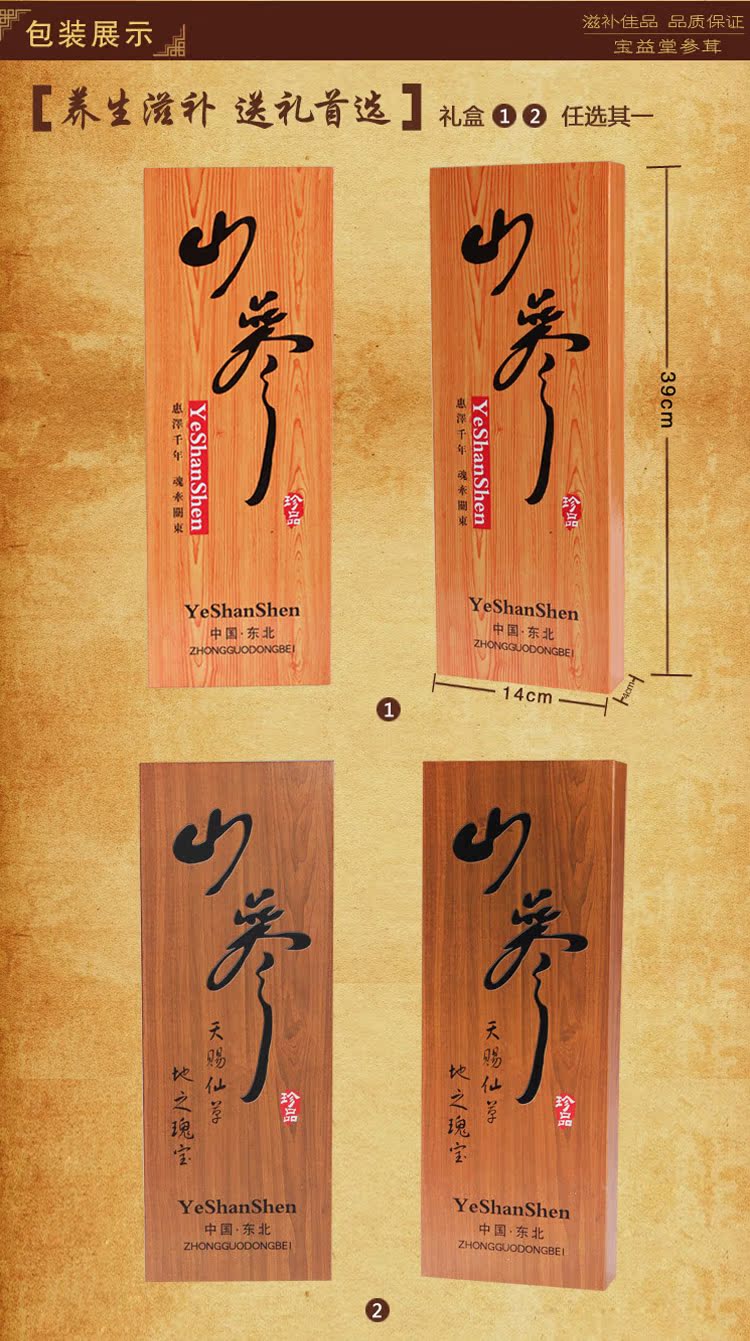 包装展示
滋补佳品 品质保证
宝益堂参茸
【养生滋补 送礼首选】 礼盒 1 2 任选其一
山参
惠澤千年 魂牵關東
YeShanShen
珍品
YeShanShen
中国·东北
ZHONGGUODONGBEI
山参
惠澤千年 魂牵關東
YeShanShen
珍品
YeShanShen
中国·东北
ZHONGGUODONGBEI
39cm
14cm
4cm
1
山参
天赐仙草
地之瑰宝
珍品
YeShanShen
中国·东北
ZHONGGUODONGBEI
山参
天赐仙草
地之瑰宝
珍品
YeShanShen
中国·东北
ZHONGGUODONGBEI
2